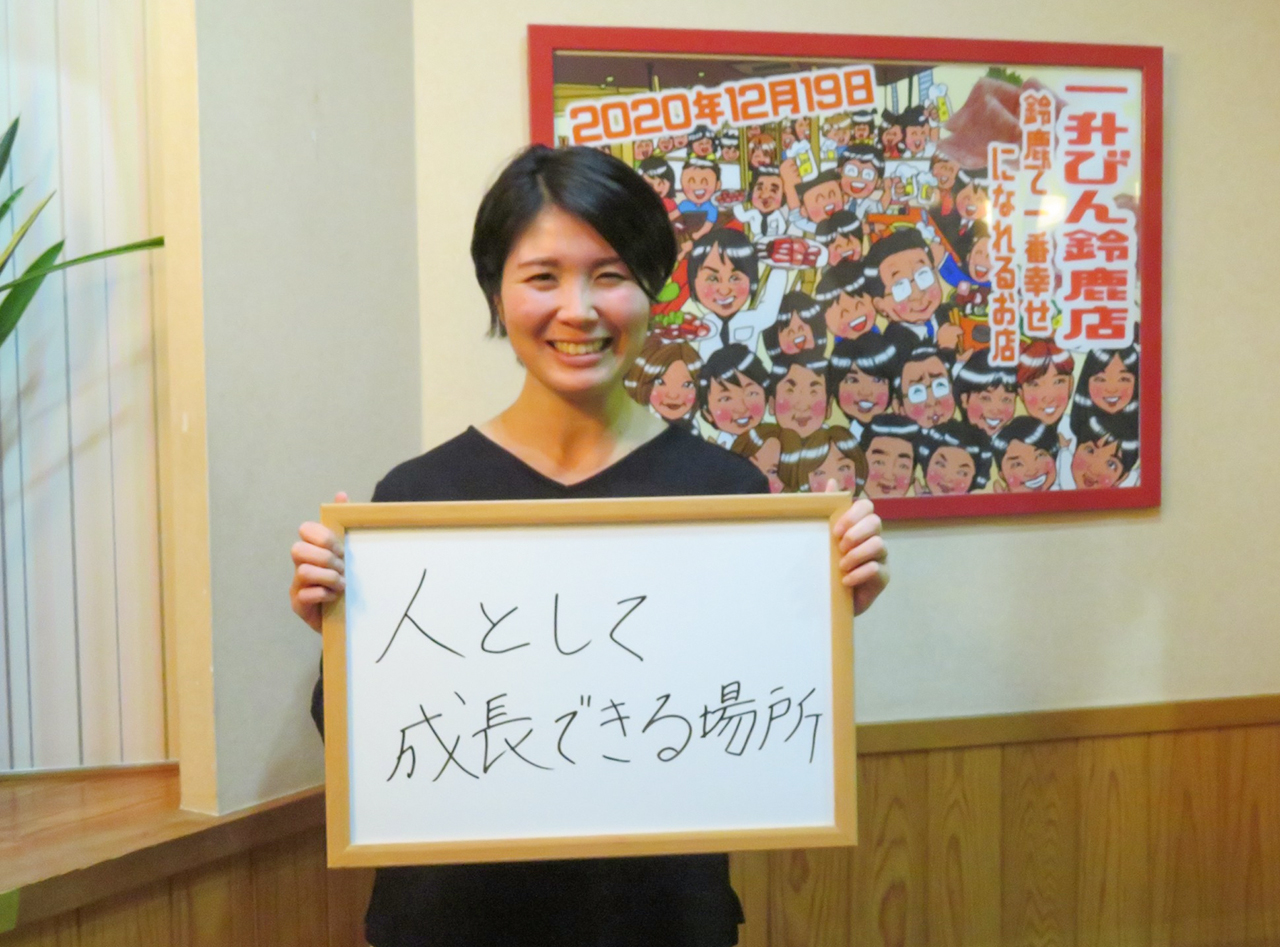 2020年12月19日
一升びん鈴鹿店
鈴鹿で一番幸せ
になれるお店
人として
成長できる場所